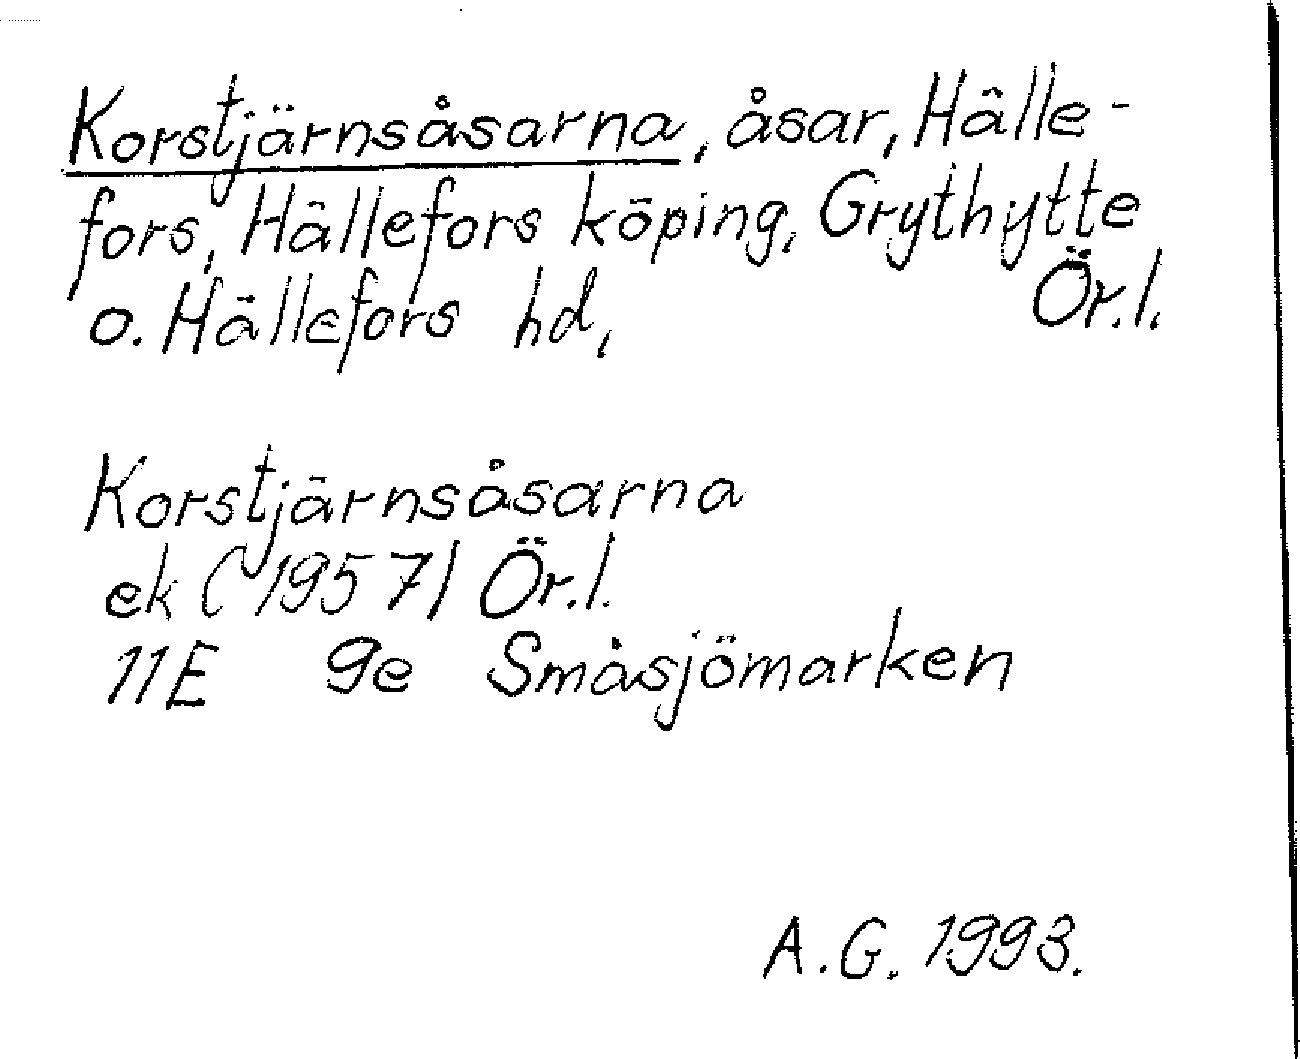 Korstjärnsåsarna, åsar, Hälle-
fors, Hällefors köping, Grythytte
o. Hällefors hd, Ör.l.
Korstjärnsåsarna
ek (1957) Ör.l.
11E 9e Småsjömarken
A.G. 1993.